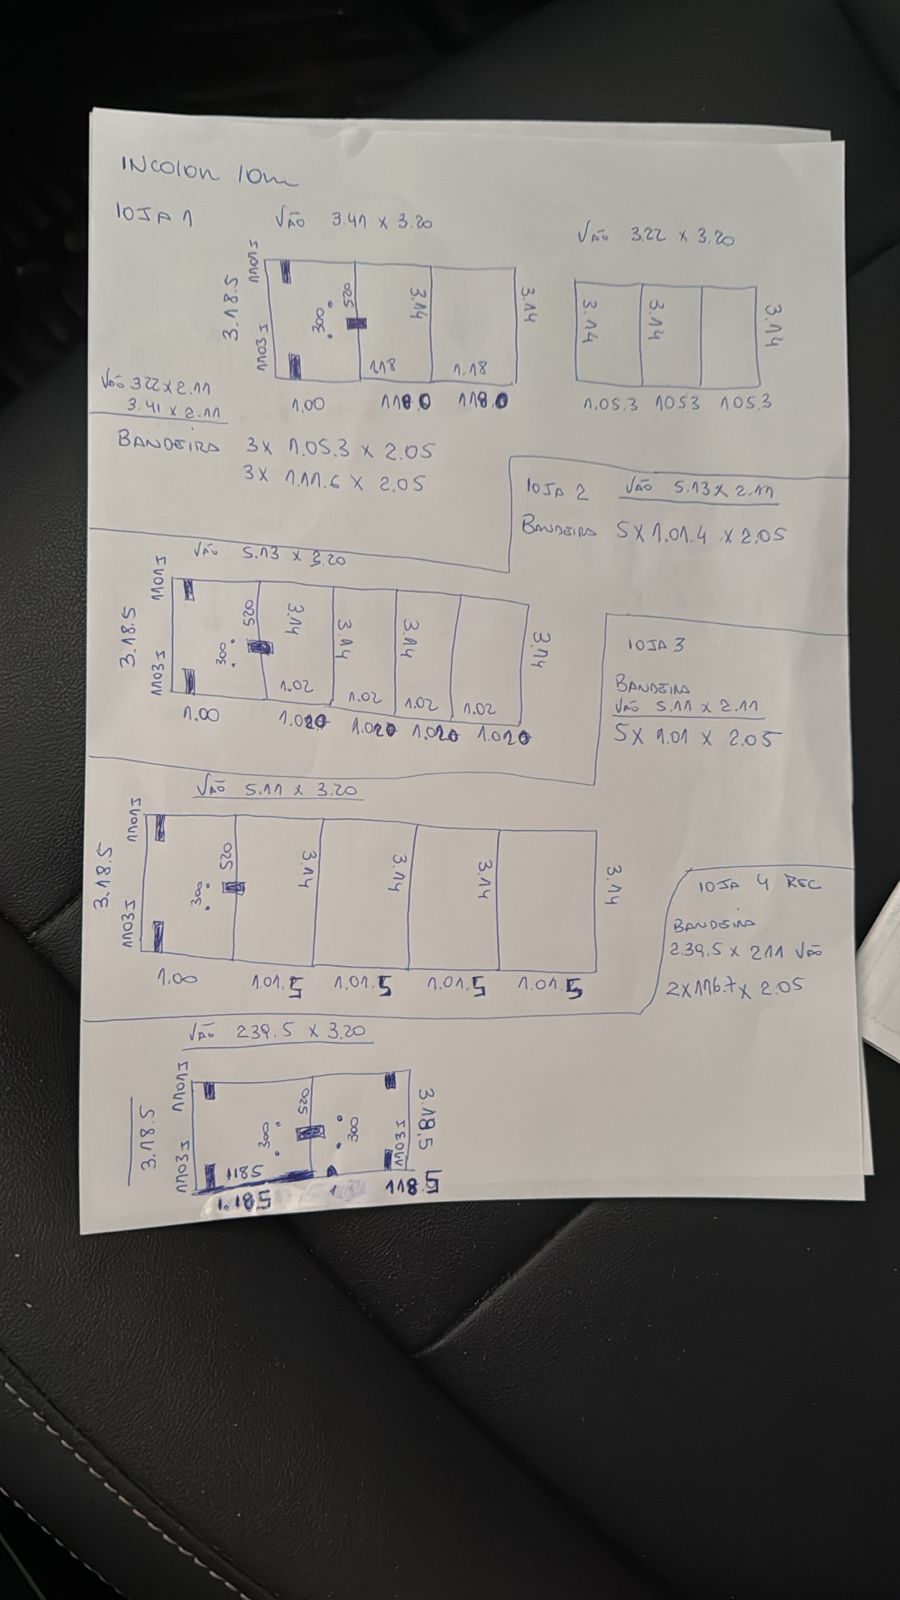 INCOLOR 10mm
LOJA 1
VÃO 3.41 x 3.20
VÃO 3.22 x 3.20
3.18.5
1101I
1103I
300
025
3.14
3.14
118
1.18
1.00
1180
1180
3.14
3.14
3.14
1.05.3 1053 1.05.3
VÃO 322 x 2.11
3.41 x 2.11
BANDEIRA 3x 1.05.3 x 2.05
3x 1.11.6 x 2.05
LOJA 2 VÃO 5.13 x 2.11
BANDEIRA 5x 1.01.4 x 2.05
VÃO 5.13 x 3.20
3.18.5
1101I
1103I
300
025
3.14
3.14
3.14
3.14
1.02
1.02
1.02
1.02
1.00 1.020 1.020 1.020 1.020
LOJA 3
BANDEIRA
VÃO 5.11 x 2.11
5x 1.01 x 2.05
VÃO 5.11 x 3.20
3.18.5
1101I
1103I
300
025
3.14
3.14
3.14
3.14
1.00 1.01.5 1.01.5 1.01.5 1.01.5
LOJA 4 REC
BANDEIRA
239.5 x 211 VÃO
2x116.7 x 2.05
VÃO 239.5 x 3.20
3.18.5
1101I
1103I
300
025
300
1103I
3.18.5
1185
118.5